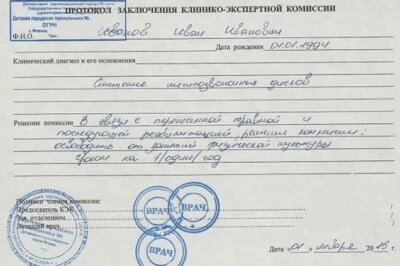 ПРОТОКОЛ ЗАКЛЮЧЕНИЯ КЛИНИКО-ЭКСПЕРТНОЙ КОМИССИИ
Детская городская поликлиника №
ОГРН
Ф.И.О. Иванов Иван Иванович
Дата рождения 01.01.1994
Клинический диагноз и его осложнения
Смещение межпозвонковых дисков
Решение комиссии В связи с перенесенной травмой и
последующей реабилитацией, решение комиссии:
освободить от занятий физической культуры
сроком на 1/один/ год
Подписи членов комиссии:
Председатель КЭК
Зав. отделением
Лечащий врач
ВРАЧ
ВРАЧ
ВРАЧ
Дата 01 января 20 г.